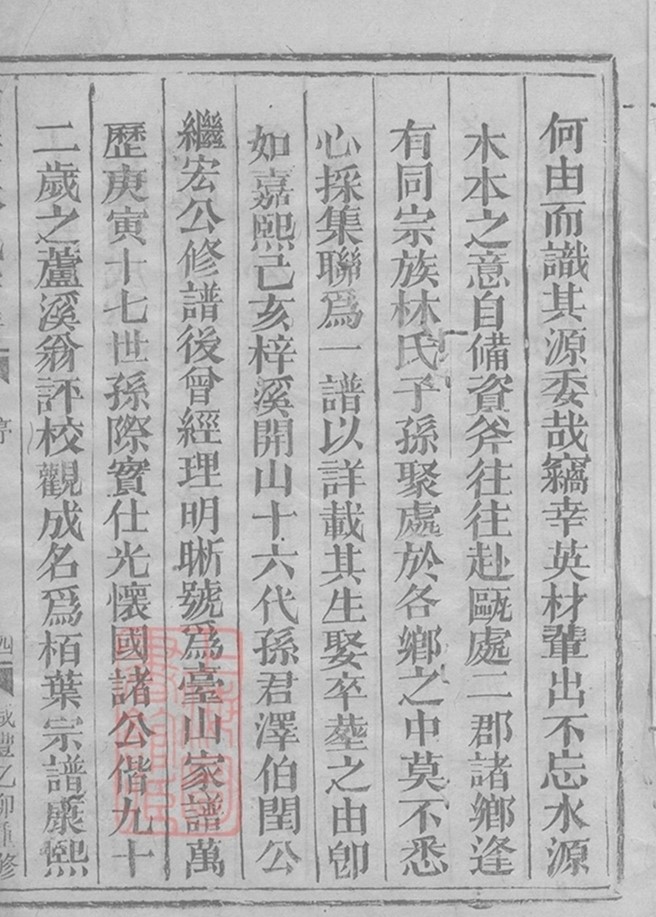 何由而識其源委哉竊幸英材輩出不忘水源
木本之意自備資斧往往赴甌處二郡諸鄉逢
有同宗族林氏子孫聚處於各鄉之中莫不悉
心採集聯爲一譜以詳載其生娶卒塟之由卽
如嘉熙己亥梓溪開山十六代孫君澤伯閏公
繼宏公修譜後曾經理明晰號爲臺山家譜萬
歷庚寅十七世孫際賓仕光懷國諸公偕九十
二歲之蘆溪翁評校觀成名爲栢葉宗譜康熙
序 四 咸豐乙卯重修